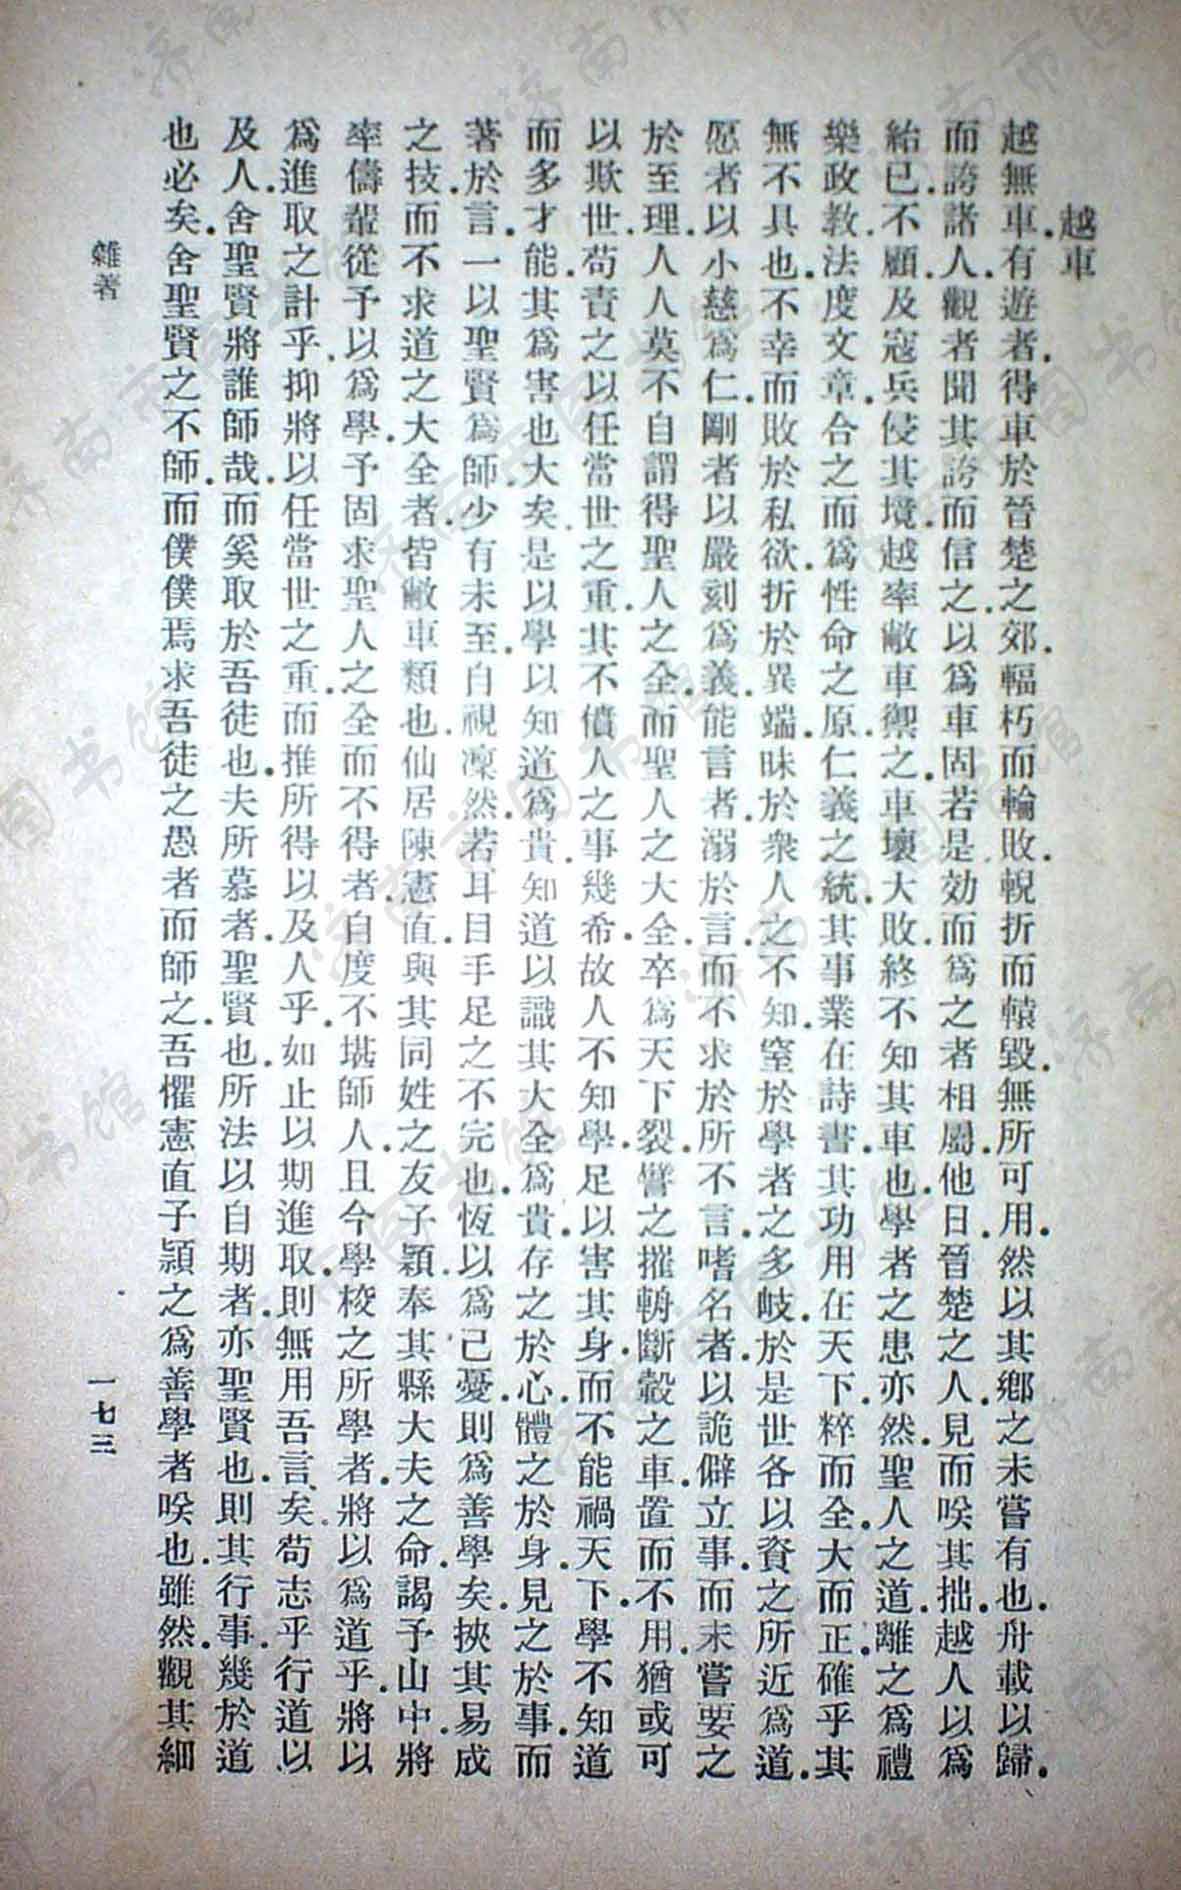 越車
越無車.有遊者.得車於晉楚之郊.輻朽而輪敗.輗折而轅毀.無所可用.然以其鄉之未嘗有也.舟載以歸.
而誇諸人.觀者聞其誇而信之.以爲車固若是.効而爲之者相屬.他日晉楚之人.見而唉其拙.越人以爲
紿已.不顧.及寇兵侵其境.越率敝車禦之.車壞大敗.終不知其車也.學者之患亦然.聖人之道.離之爲禮
樂政教.法度文章.合之而爲性命之原.仁義之統.其事業在詩書.其功用在天下.粹而全.大而正.確乎其
無不具也.不幸而敗於私欲.折於異端.昧於衆人之不知.窒於學者之多岐.於是世各以資之所近爲道.
愿者以小慈爲仁.剛者以嚴刻爲義.能言者.溺於言.而不求於所不言.嗜名者.以詭僻立事.而未嘗要之
於至理.人人莫不自謂得聖人之全.而聖人之大全.卒爲天下裂.譬之摧輈斷轂之車.置而不用.猶或可
以欺世.苟責之以任當世之重.其不僨人之事幾希.故人不知學.足以害其身.而不能禍天下.學不知道
而多才能.其爲害也大矣.是以學以知道爲貴.知道以識其大全爲貴.存之於心.體之於身.見之於事.而
著於言.一以聖賢爲師.少有未至.自視凜然.若耳目手足之不完也.恆以爲己憂.則爲善學矣.挾其易成
之技.而不求道之大全者.皆敝車類也.仙居陳憲直.與其同姓之友子穎.奉其縣大夫之命.謁予山中.將
率儔輩從予以爲學.予固求聖人之全而不得者.自度不堪師人.且今學校之所學者.將以爲道乎.將以
爲進取之計乎.抑將以任當世之重.而推所得以及人乎.如止以期進取.則無用吾言矣.苟志乎行道以
及人.舍聖賢將誰師哉.而奚取於吾徒也.夫所慕者.聖賢也.所法以自期者.亦聖賢也.則其行事.幾於道
也必矣.舍聖賢之不師.而僕僕焉求吾徒之愚者而師之.吾懼憲直子穎之爲善學者唉也.雖然.觀其細
雜著
一七三